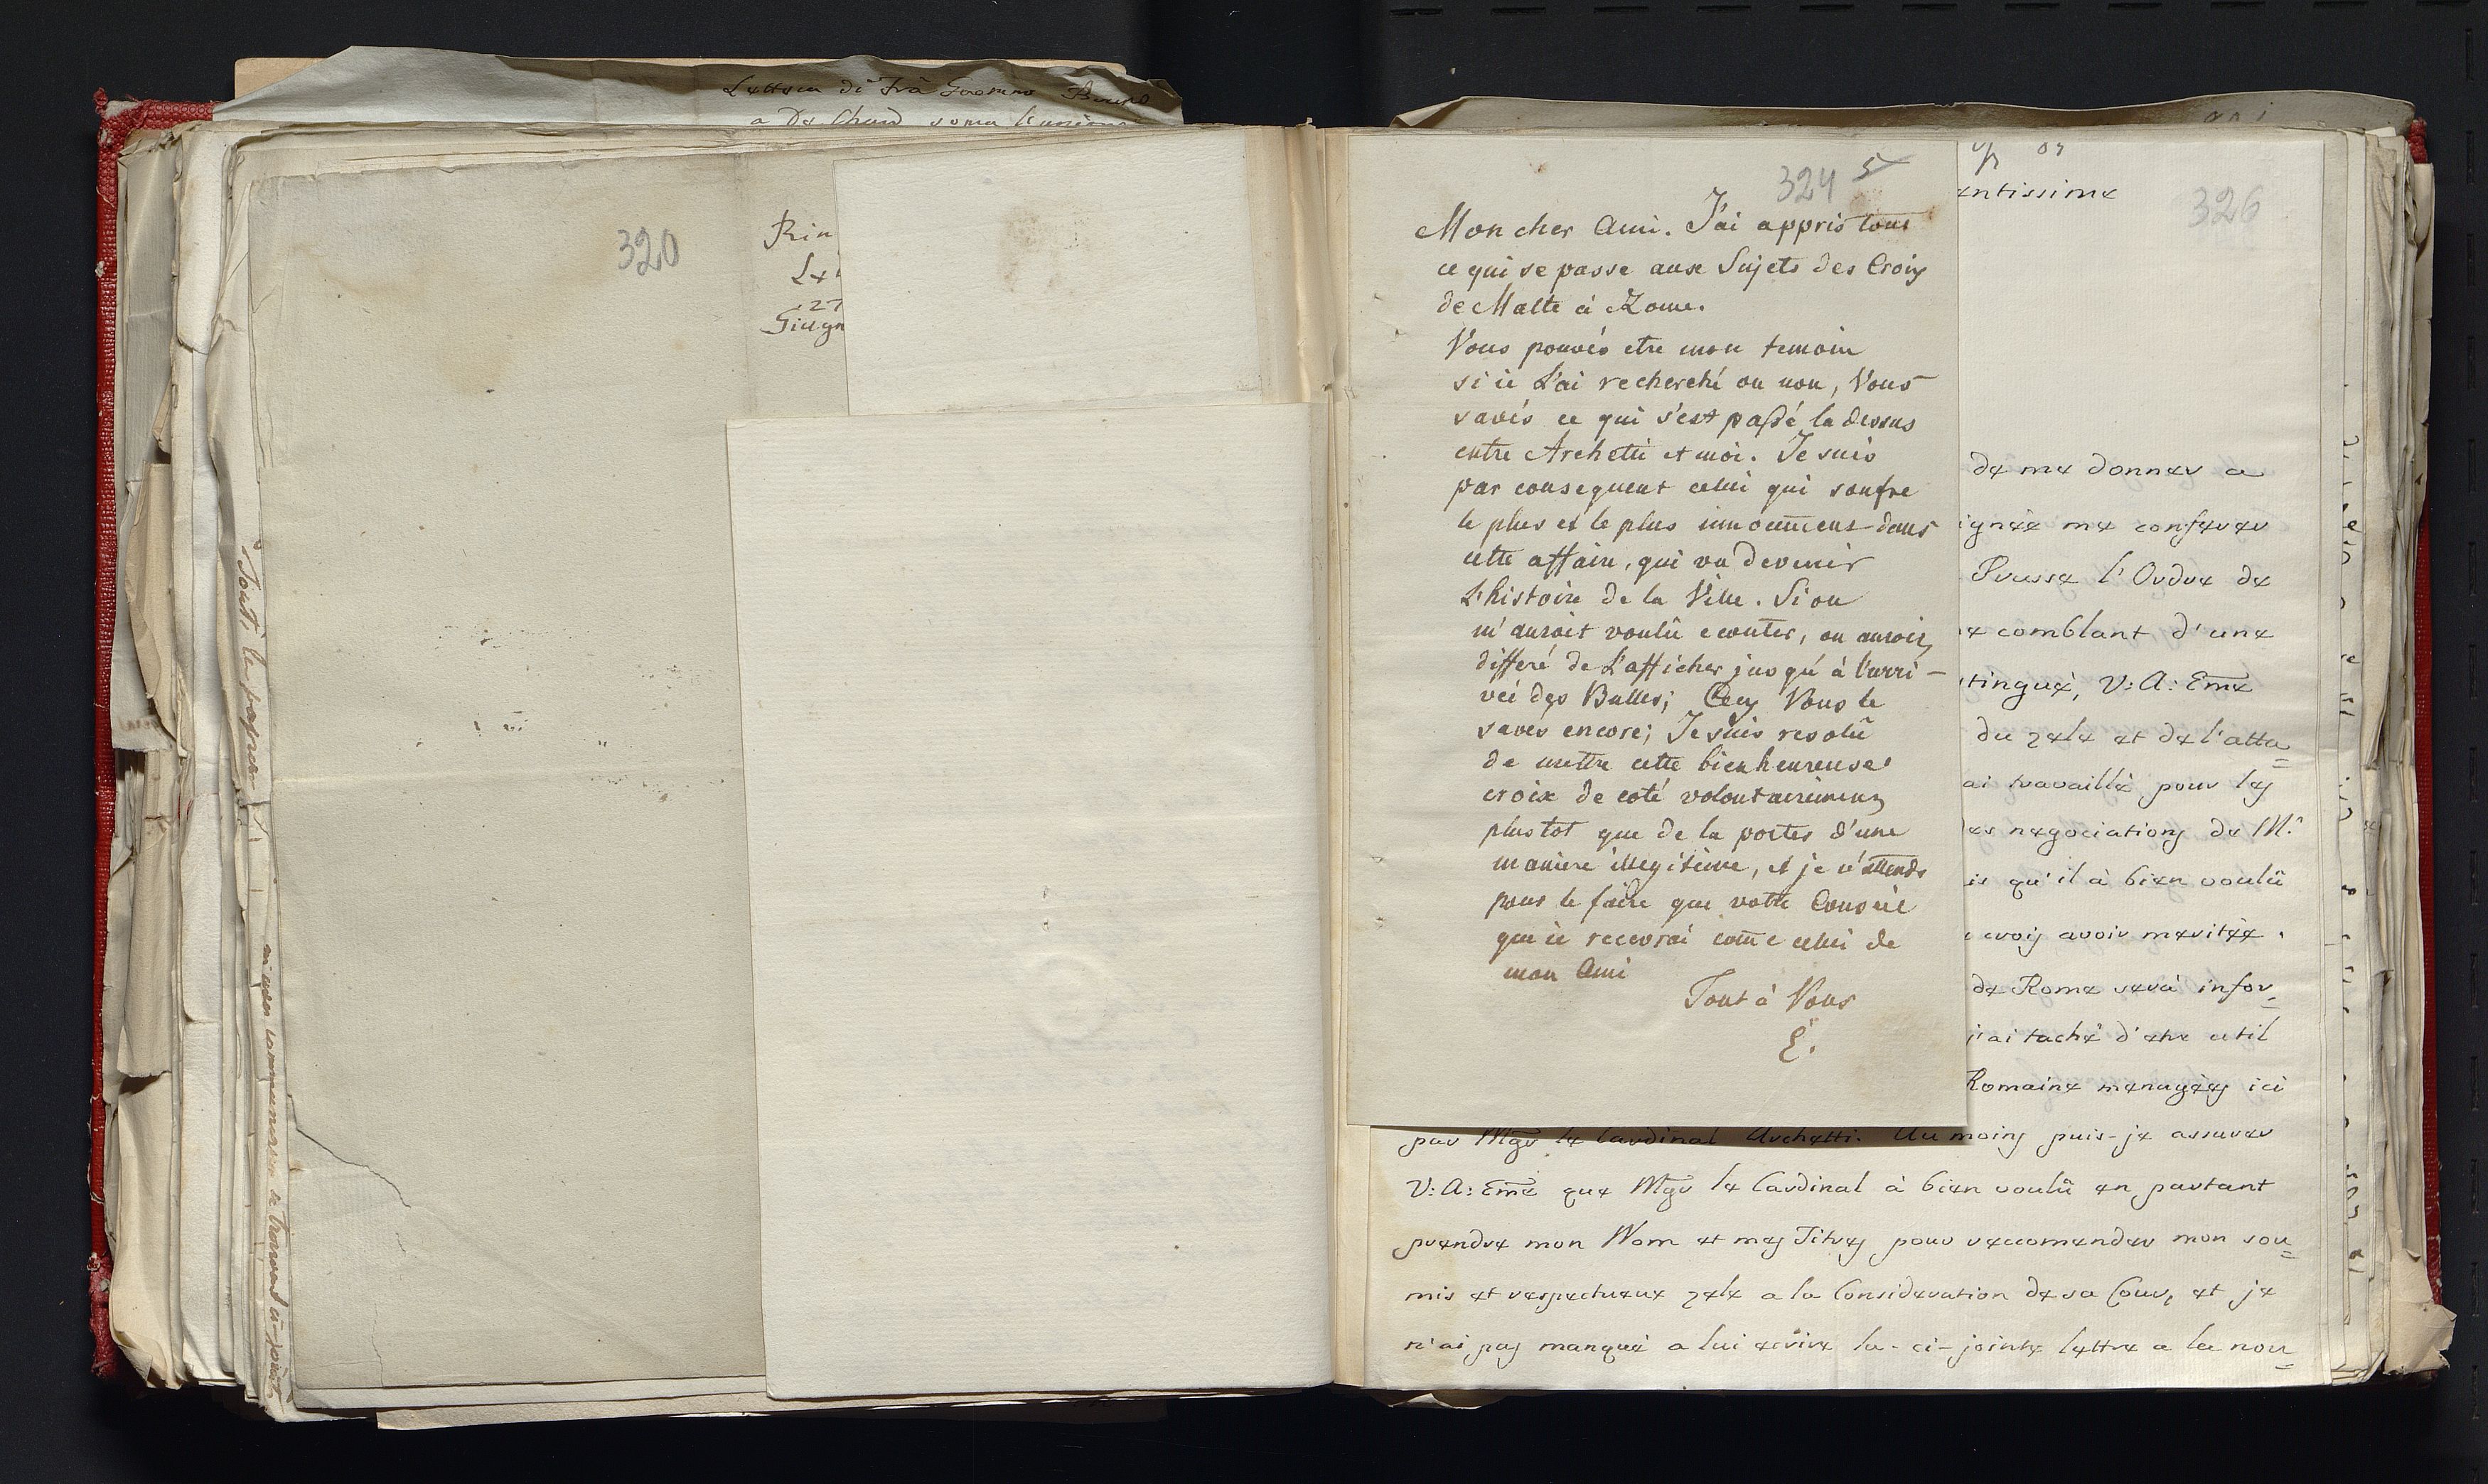 Lettera di Frà
a De
320
Rin
27
Giugn
324 5
Mon cher Ami. J'ai appris tous
ce qui se passe aux Sujets des Croix
de Malte à Rome.
Vous pouvés etre mon temoin
si ie L'ai recherché ou non, Vous
savés ce qui s'est passé la dessus
entre Archetti et moi. Je suis
par consequent celui qui soufre
le plus et le plus innocemment dans
cette affaire, qui va devenir
L'histoire de la Ville. Si on
m'auroit voulû ecouter, on auroit
differé de L'afficher jusqu'à l'arri-
veé des Bulles; Cecy Vous le
savés encore; Je suis resolû
de mettre cette bienheureuse
croix de coté volontairement
plustot que de la porter d'une
maniere illegitime, et je n'attends
pour le faire que votre Conseil
que ie recevrai comme celui de
mon Ami
Tout à Vous
E.
entissime
326
de me donner a
ignée me conferer
Prusse l'Ordre de
e comblant d'une
tingué, V: A: Eme
du zele et de l'atta=
ai travaillé pour les
des negociations de Mr.
is qu'il à bien voulû
crois avoir meritée.
de Rome serà infor=
j'ai taché d'etre util
Romaine menagées ici
par Mgr le Cardinal Archetti. Au moins puis-je assurer
V: A: Eme que Mgr le Cardinal à bien voulû en partant
prendre mon Nom et mes Titres pour reccomender mon sou=
mis et respectueux zele a la Consideration de sa Cour, et je
n'ai pas manqué a lui ecrire la-ci-jointe lettre a la nou=